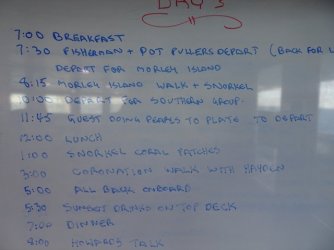 DAY 3
7:00 BREAKFAST
7:30 FISHERMAN + POT PULLERS DEPART (BACK FOR
DEPART FOR MORLEY ISLAND
8:15 MORLEY ISLAND WALK + SNORKEL
10:00 DEPART FOR SOUTHERN GROUP.
11:45 GUEST DOING PEARLS TO PLATE TO DEPART
12:00 LUNCH
1:00 SNORKEL CORAL PATCHES
3:00 CORONATION WALK WITH
5:00 ALL BACK ONBOARD
5:30 SUNSET DRINKS ON TOP DECK
7:00 DINNER
8:00 HOWARDS TALK